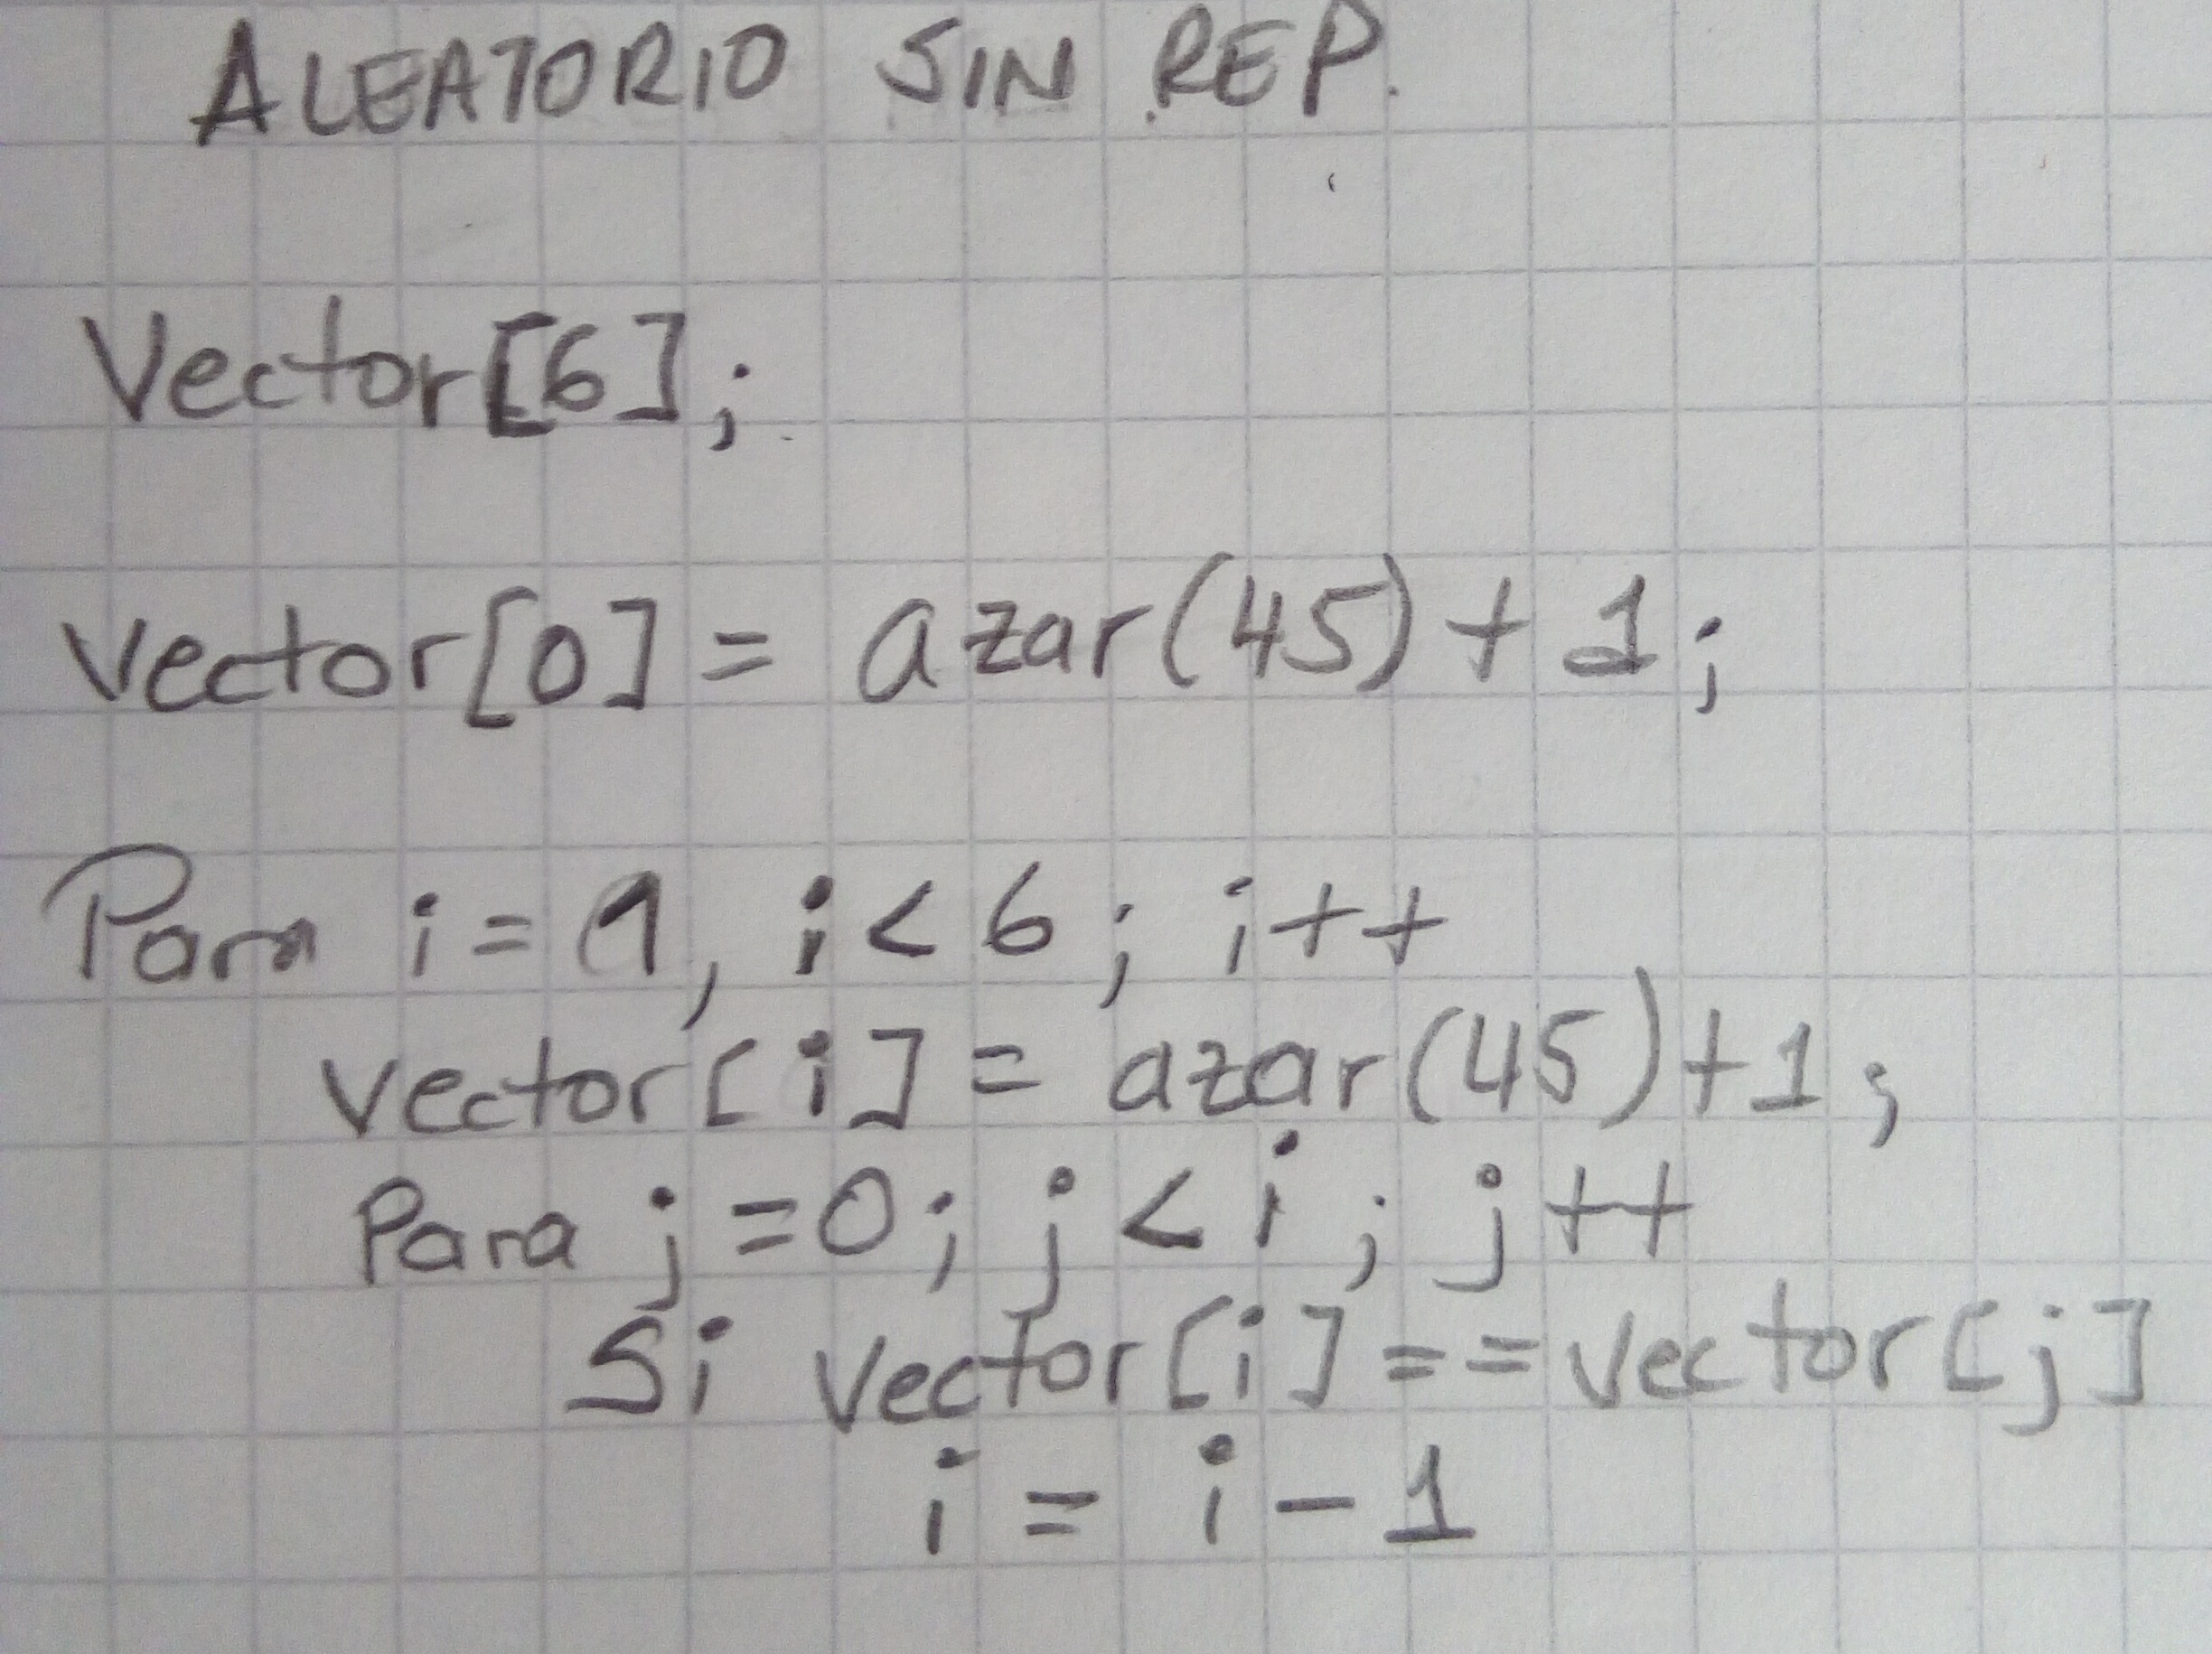 ALEATORIO SIN REP.
Vector[6];
vector[0] = azar(45) + 1;
Para i = 1, i < 6; i++
vector[i] = azar(45) + 1;
Para j = 0; j < i; j++
Si vector[i] == vector[j]
i = i - 1